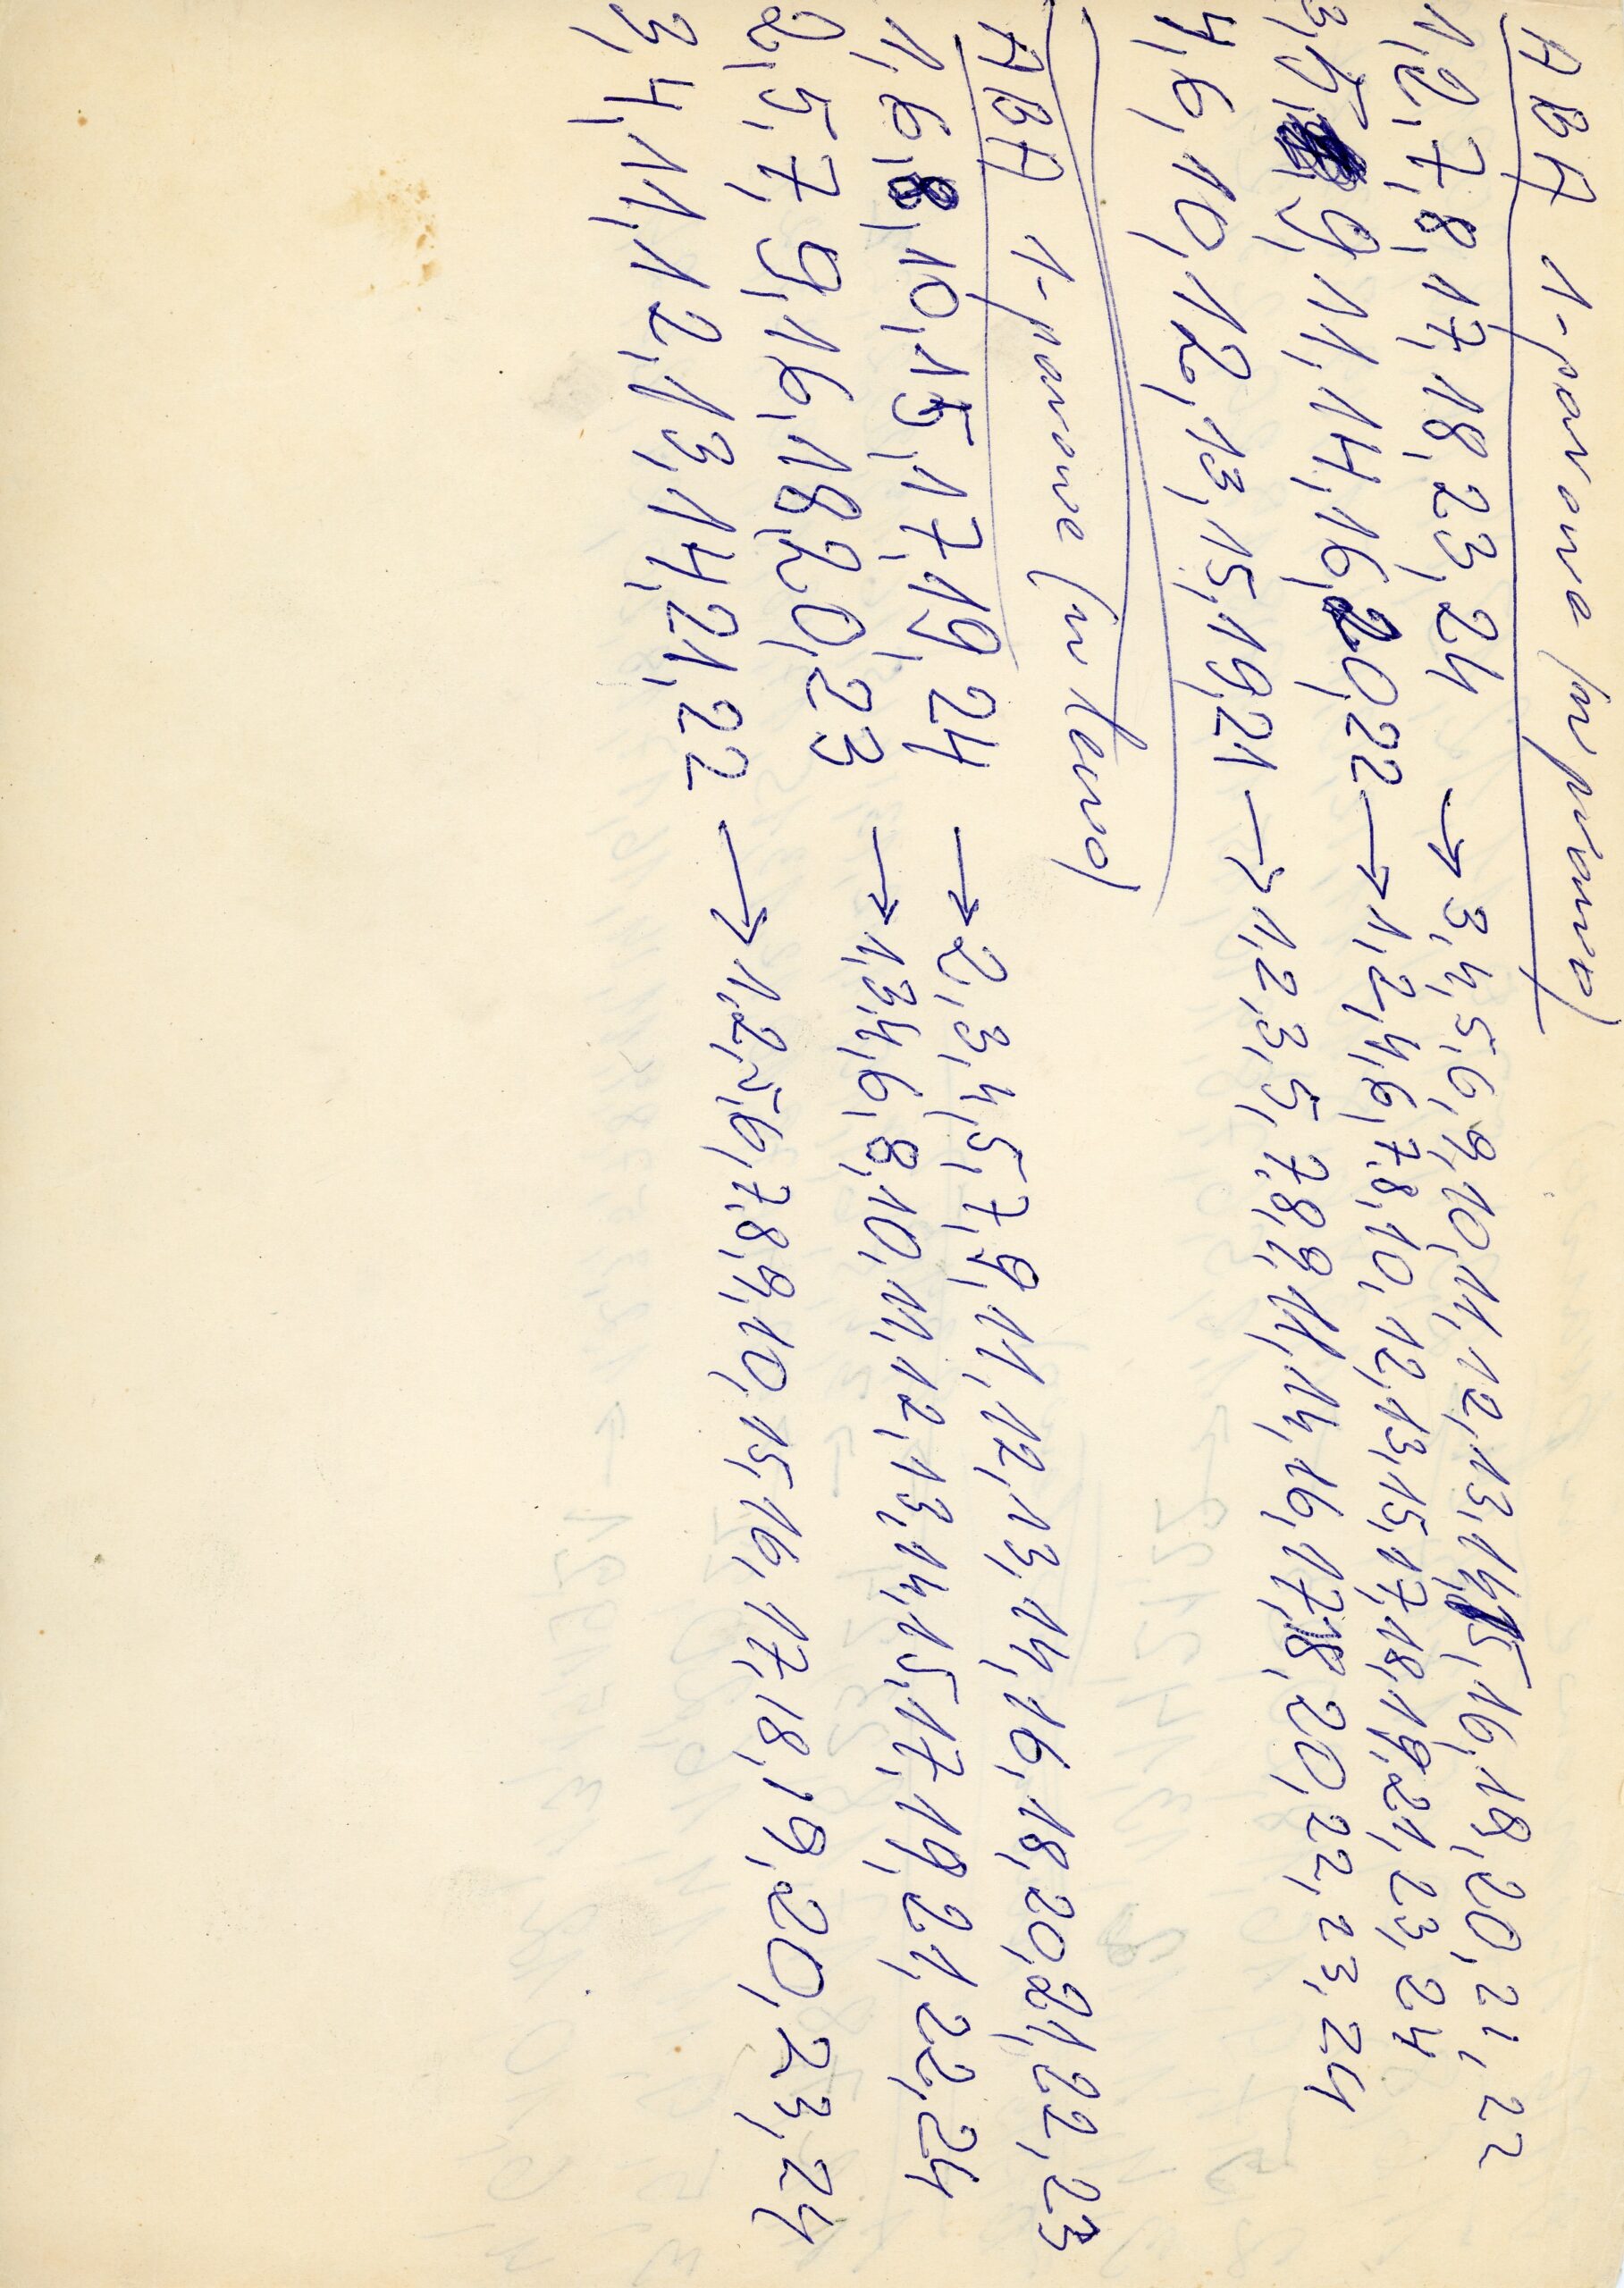 ABA 1-parowa (w prawo)
1,2,7,8,17,18,23,24 → 3,4,5,6,9,10,11,12,13,14,15,16,19,20,21,22
3,5,9,11,14,16,20,22 → 1,2,4,6,7,8,10,12,13,15,17,18,19,21,23,24
4,6,10,12,13,15,19,21 → 1,2,3,5,7,8,9,11,14,16,17,18,20,22,23,24
ABA 1-parowa (w lewo)
1,6,8,10,15,17,19,24 → 2,3,4,5,7,9,11,12,13,14,16,18,20,21,22,23
2,5,7,9,16,18,20,23 → 1,3,4,6,8,10,11,12,13,14,15,17,19,21,22,24
3,4,11,12,13,14,21,22 → 1,2,5,6,7,8,9,10,15,16,17,18,19,20,23,24